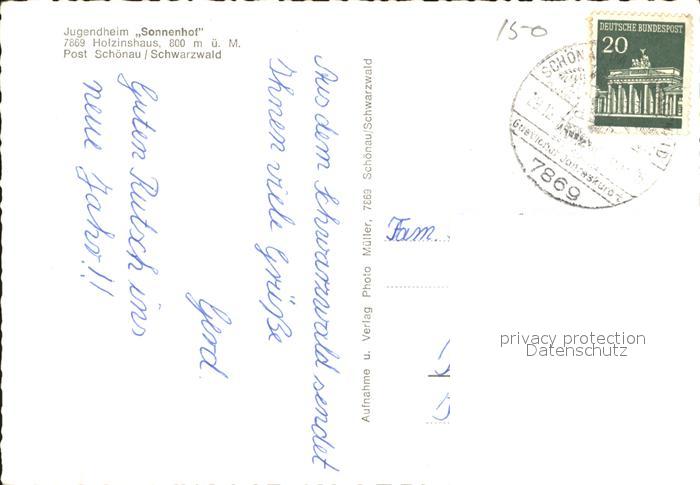 Jugendheim „Sonnenhof"
7869 Holzinshaus, 800 m ü. M.
Post Schönau / Schwarzwald
150
DEUTSCHE BUNDESPOST
20
SCHÖNAU
7869
Aus dem Schwarzwald sendet
Ihnen viele Grüße
Gerd.
Guten Rutsch ins
neue Jahr!!
Aufnahme u. Verlag Photo Müller, 7869 Schönau/Schwarzwald
Fam.
privacy protection
Datenschutz